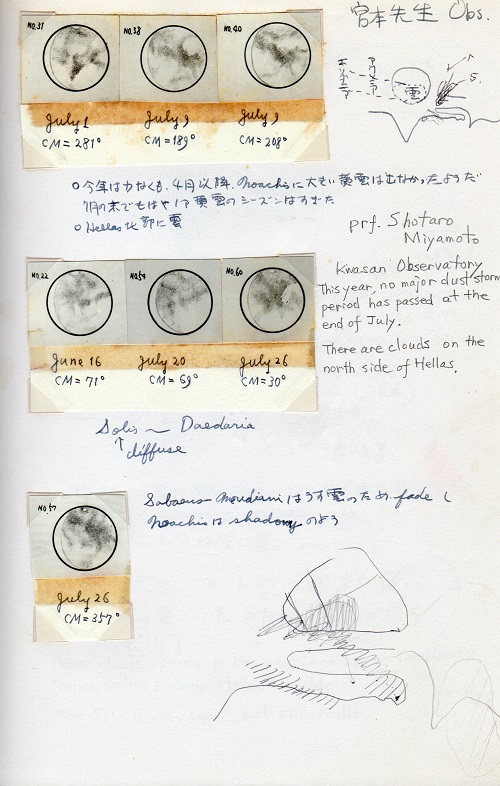 宮本先生 Obs.
No.37 No.38 No.40
July 1 July 9 July 9
CM=281° CM=189° CM=208°
雲
S.
○今年は少なくも、4月以降、Noachisに大きい黄雲は出なかったようだ
7月の末でもはや 黄雲のシーズンはすぎた
○Hellas北部に雲
prf. Shotaro
Miyamoto
Kwasan Observatory
This year, no major dust storm
period has passed at the
end of July.
There are clouds on the
north side of Hellas.
No.22 No.58 No.60
June 16 July 20 July 26
CM=71° CM=69° CM=30°
Solis ~ Daedaria
↑
diffuse
No.57
July 26
CM=357°
Sabaeus- Meridiani はうす雲のため fade し
Noachis は shadowy のよう